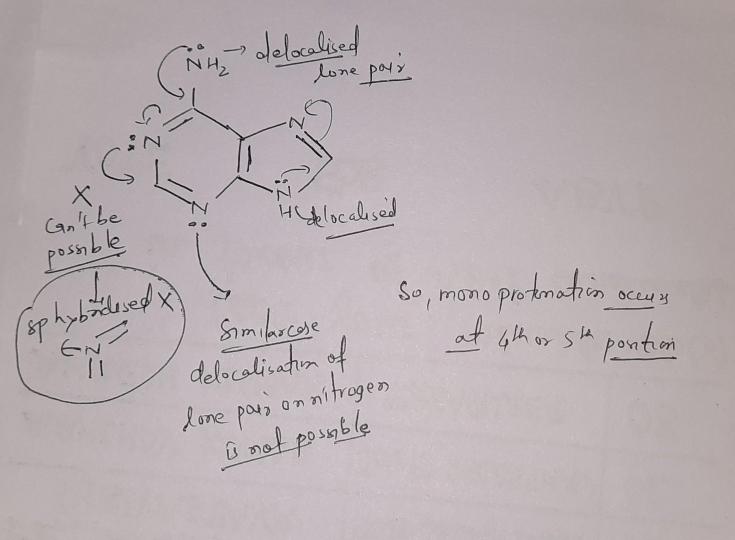 N̈H₂ → delocalised
lone pair
N
:N
N
N̈
H delocalised
X
Can't be
possible
sp hybridised X
N
Similar case
delocalisation of
lone pair on nitrogen
is not possible
So, mono protonation occurs
at 4th or 5th position